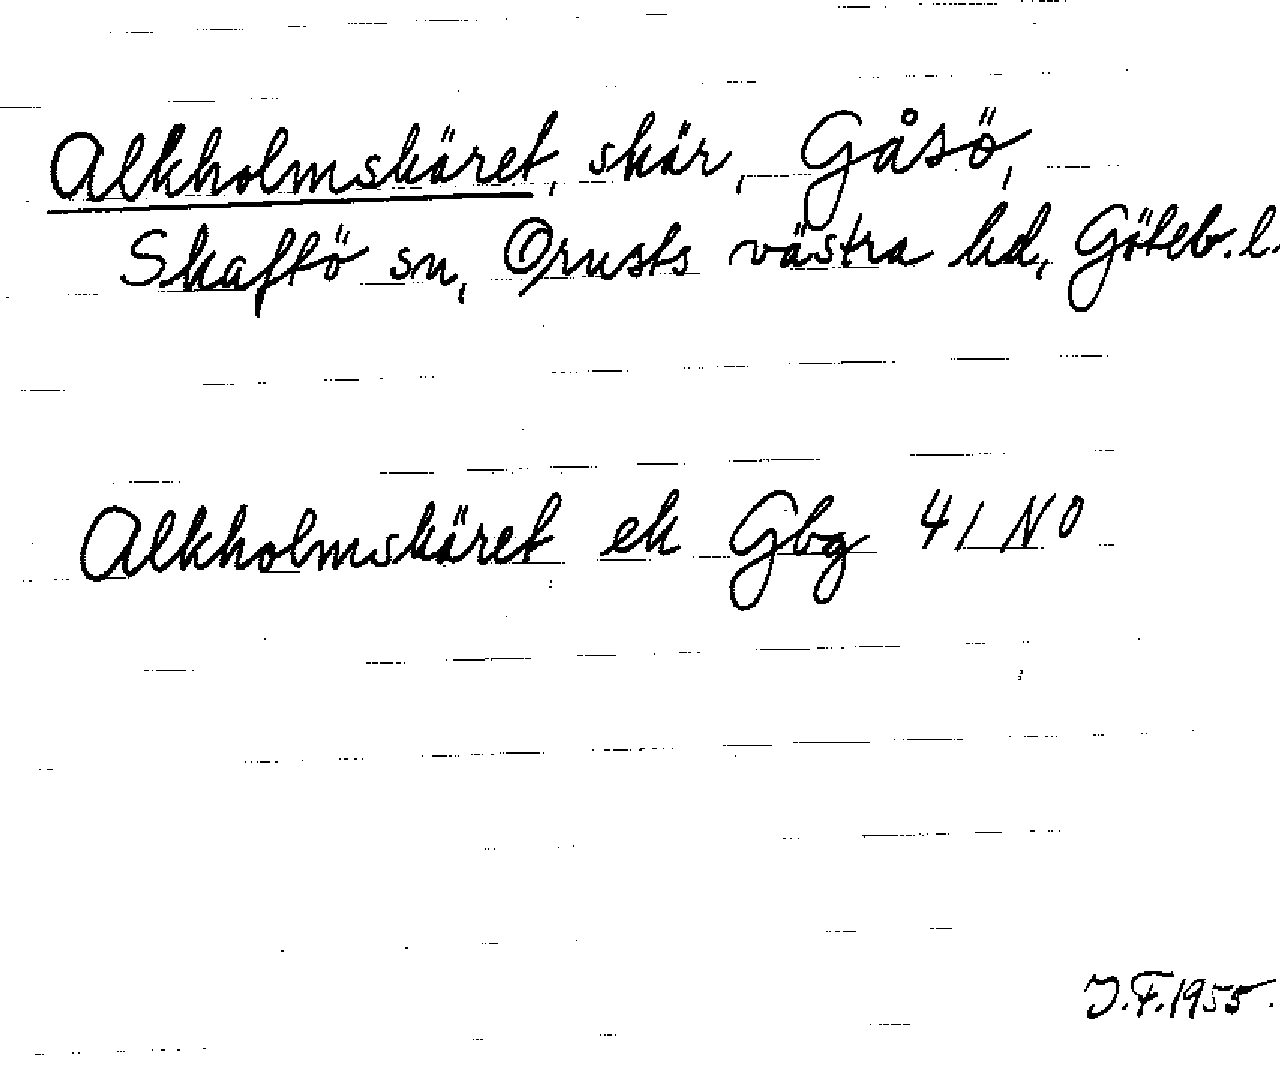 Alkholmskäret, skär, Gåsö,
Skaftö sn, Orusts västra hd, Göteb. l.
Alkholmskäret ek Gbg 41 NO
J.F. 1955.